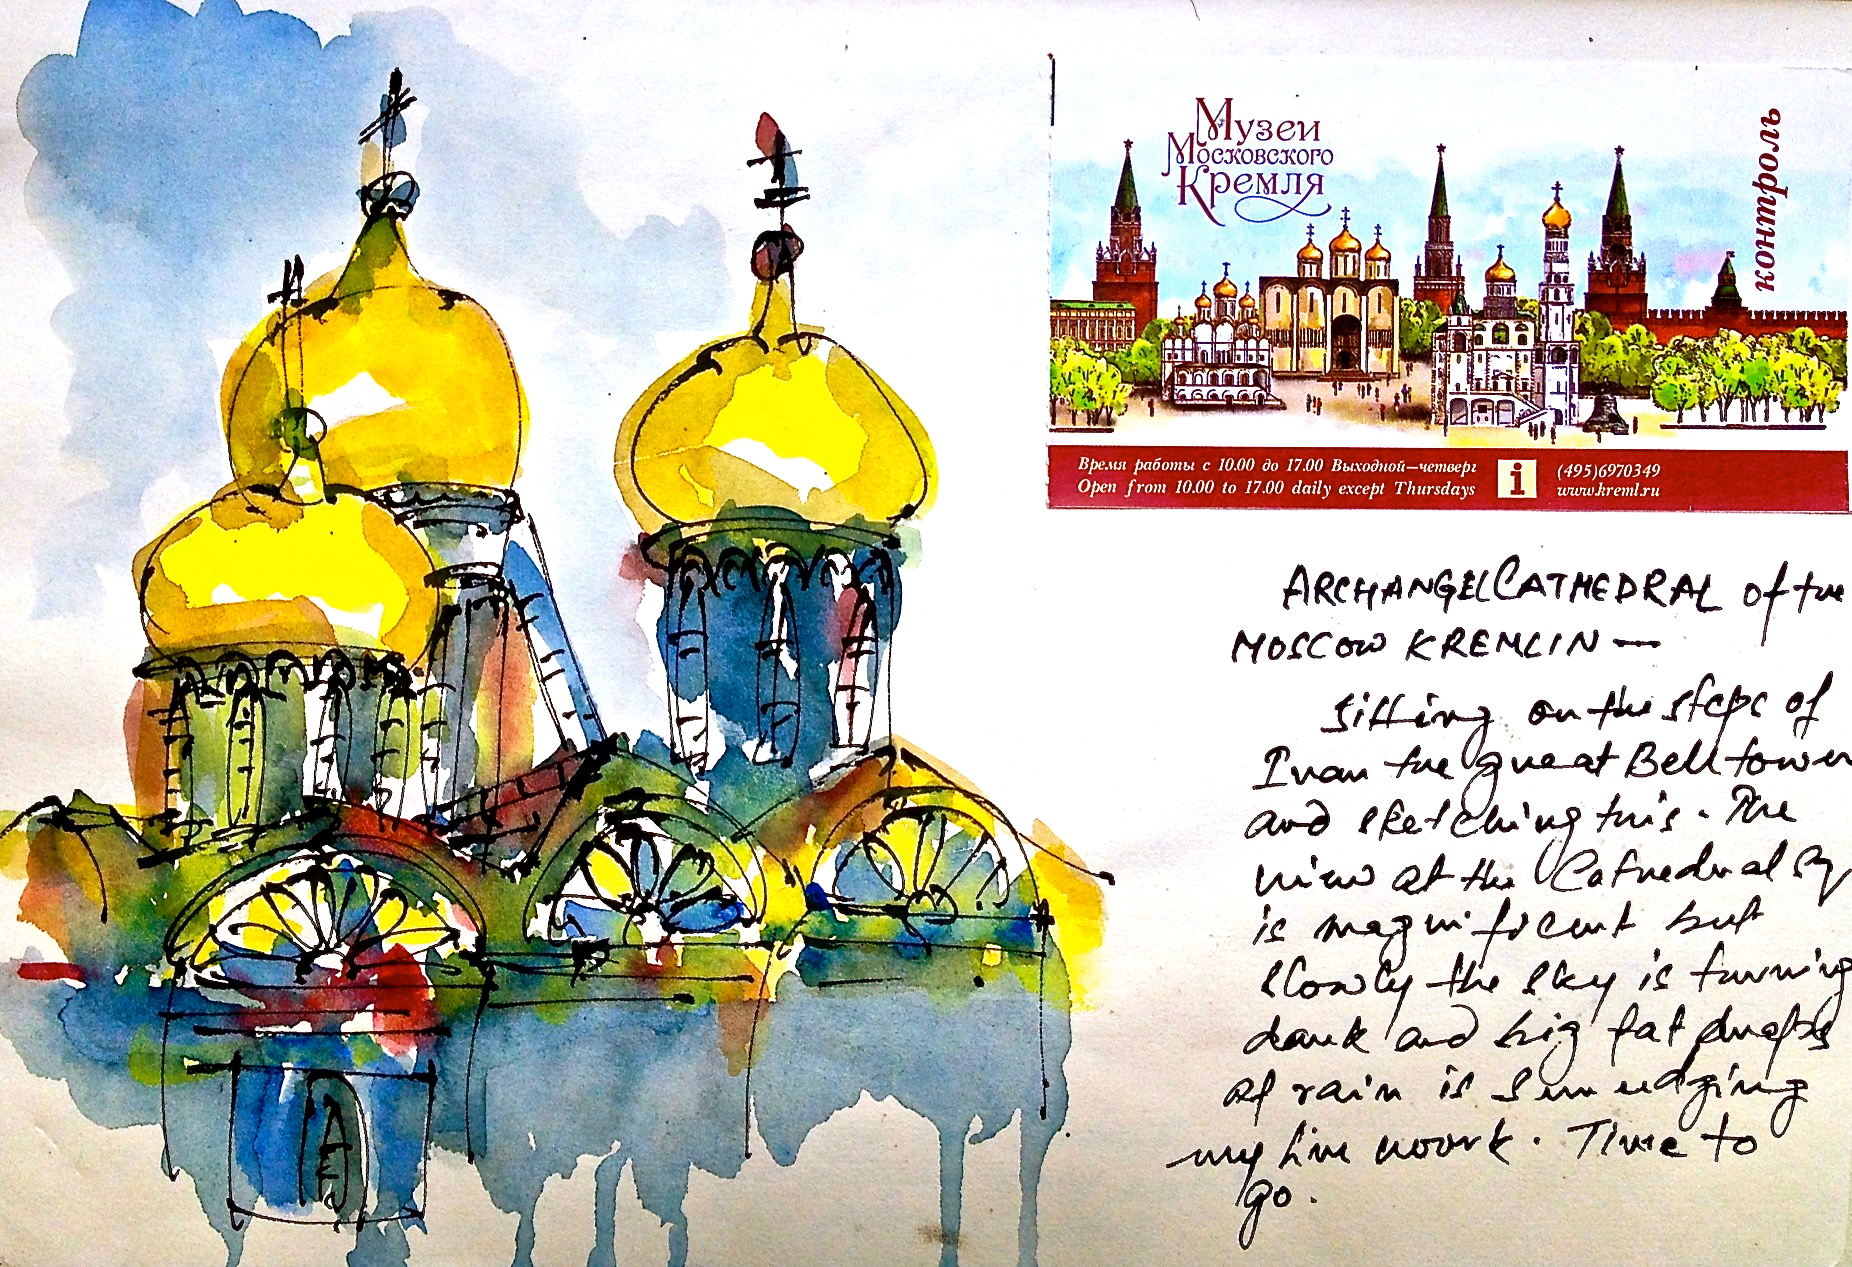 Музеи
Московского
Кремля
контроль
Время работы с 10.00 до 17.00 Выходной—четверг
Open from 10.00 to 17.00 daily except Thursdays
i
(495)6970349
www.kreml.ru
ARCHANGEL CATHEDRAL of the
MOSCOW KREMLIN —
Sitting on the steps of
Ivan the great Bell tower
and sketching this. The
view at the Cathedral Sq
is magnificent but
slowly the sky is turning
dark and big fat drops
of rain is smudging
my line work. Time to
go.